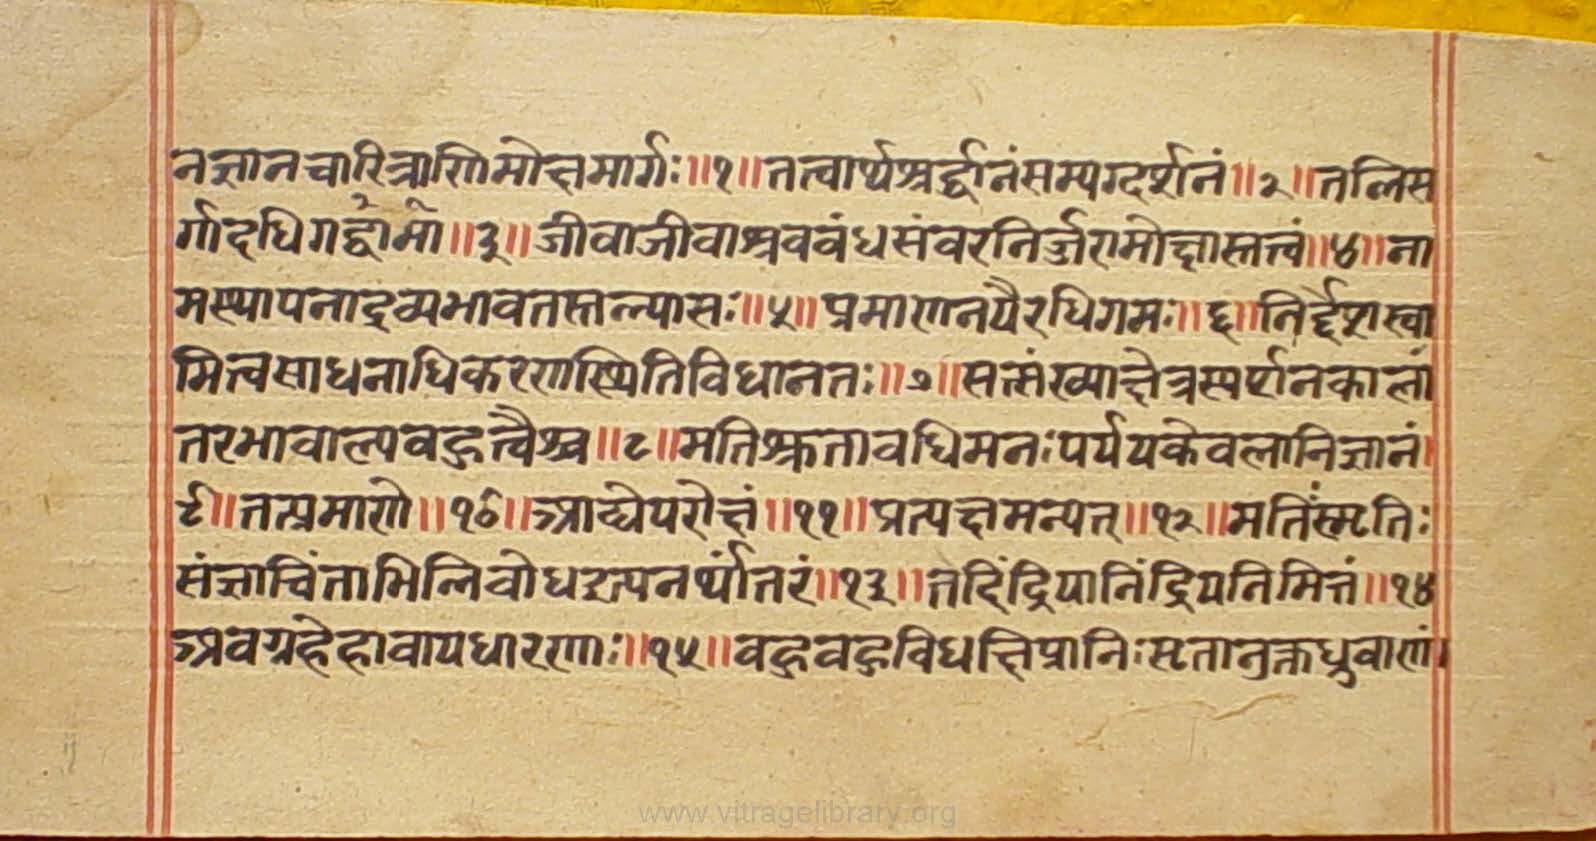 नज्ञानचारित्राणिमोक्षमार्गः॥१॥तत्वार्थश्रर्द्धानंसम्यग्दर्शनं॥२॥तन्निस
र्गादधिगमाद्वा॥३॥जीवाजीवाश्रवबंधसंवरनिर्ज्जरामोक्षास्तत्त्वं॥४॥ना
मस्थापनाद्रव्यभावतस्तन्न्यासः॥५॥प्रमाणनयैरधिगमः॥६॥निर्द्देशस्वा
मित्वसाधनाधिकरणस्थितिविधानतः॥७॥सत्संख्याक्षेत्रस्पर्शनकालां
तरभावाल्पबहुत्वैश्च॥८॥मतिश्रुतावधिमनःपर्ययकेवलानिज्ञानं।
९॥तत्प्रमाणे॥१०॥आद्येपरोक्षं॥११॥प्रत्यक्षमन्यत्॥१२॥मतिंस्मृतिः
संज्ञाचिंताभिन्निबोधइत्यनर्थांतरं॥१३॥तदिंद्रियानिंद्रियनिमित्तं॥१४
अवग्रहेहावायधारणाः॥१५॥बहुबहुविधक्षिप्रानिःसृतानुक्तध्रुवाणां।
www.vitragelibrary.org